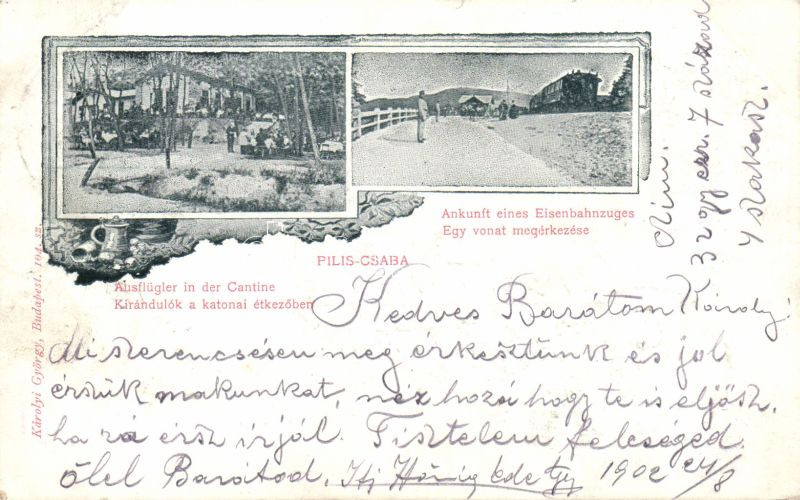 Ankunft eines Eisenbahnzuges
Egy vonat megérkezése
PILIS-CSABA
Ausflügler in der Cantine
Kirándulók a katonai étkezőben
Károlyi György, Budapest. 104. sz.
Kedves Barátom Károly!
Mi szerencsésen meg érkeztünk és jol
érzük makunkat, néz hozá hogy te is eljösz.
ha rá érsz irjál. Tisztelem feleséged
ölel Barátod, Ifj Ede 1902 24/8
Cím.
32 gy ezr. 7 század
4 szakasz.